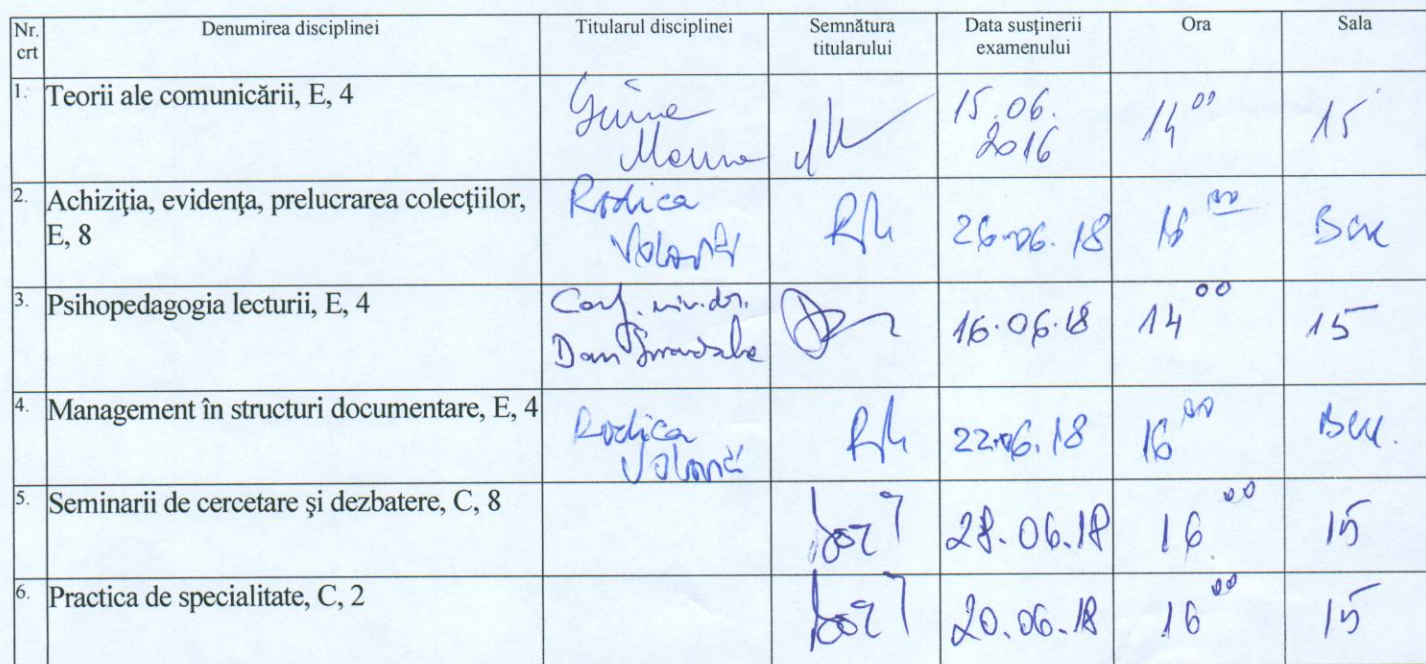 Nr. crt Denumirea disciplinei Titularul disciplinei Semnătura titularului Data susținerii examenului Ora Sala
1. Teorii ale comunicării, E, 4 15.06.2016 14 00 15
2. Achiziţia, evidenţa, prelucrarea colecţiilor, E, 8 Rodica 26.06.18 16 00
3. Psihopedagogia lecturii, E, 4 Conf. univ. dr. Dan 16.06.18 14 00 15
4. Management în structuri documentare, E, 4 Rodica 22.06.18 16 00
5. Seminarii de cercetare şi dezbatere, C, 8 28.06.18 16 00 15
6. Practica de specialitate, C, 2 20.06.18 16 00 15